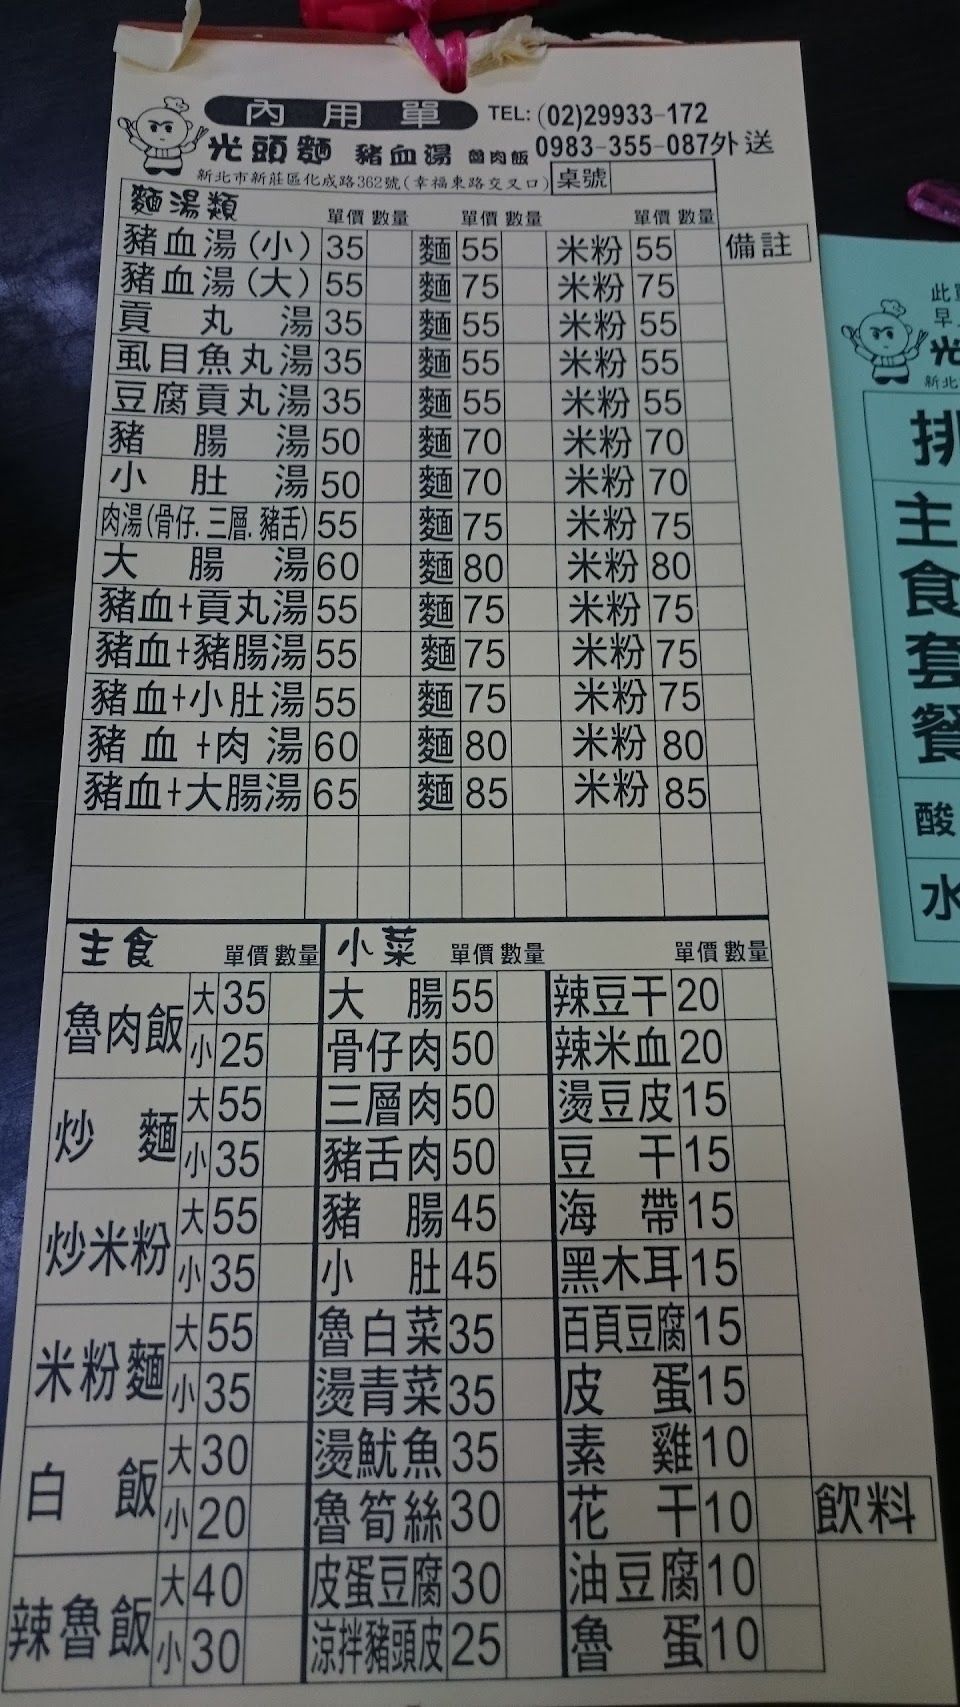 內用單 TEL: (02)29933-172
光頭麵 豬血湯 魯肉飯 0983-355-087外送
新北市新莊區化成路362號(幸福東路交叉口) 桌號
麵湯類 單價 數量 單價 數量 單價 數量
豬血湯(小) 35 麵 55 米粉 55 備註
豬血湯(大) 55 麵 75 米粉 75
貢丸湯 35 麵 55 米粉 55
虱目魚丸湯 35 麵 55 米粉 55
豆腐貢丸湯 35 麵 55 米粉 55
豬腸湯 50 麵 70 米粉 70
小肚湯 50 麵 70 米粉 70
肉湯(骨仔.三層.豬舌) 55 麵 75 米粉 75
大腸湯 60 麵 80 米粉 80
豬血+貢丸湯 55 麵 75 米粉 75
豬血+豬腸湯 55 麵 75 米粉 75
豬血+小肚湯 55 麵 75 米粉 75
豬血+肉湯 60 麵 80 米粉 80
豬血+大腸湯 65 麵 85 米粉 85
主食 單價 數量 小菜 單價 數量 單價 數量
魯肉飯 大 35 大腸 55 辣豆干 20
小 25 骨仔肉 50 辣米血 20
炒麵 大 55 三層肉 50 燙豆皮 15
小 35 豬舌肉 50 豆干 15
炒米粉 大 55 豬腸 45 海帶 15
小 35 小肚 45 黑木耳 15
米粉麵 大 55 魯白菜 35 百頁豆腐 15
小 35 燙青菜 35 皮蛋 15
白飯 大 30 燙魷魚 35 素雞 10
小 20 魯筍絲 30 花干 10 飲料
辣魯飯 大 40 皮蛋豆腐 30 油豆腐 10
小 30 涼拌豬頭皮 25 魯蛋 10
早
光
新北
排
主
食
套
餐
酸
水